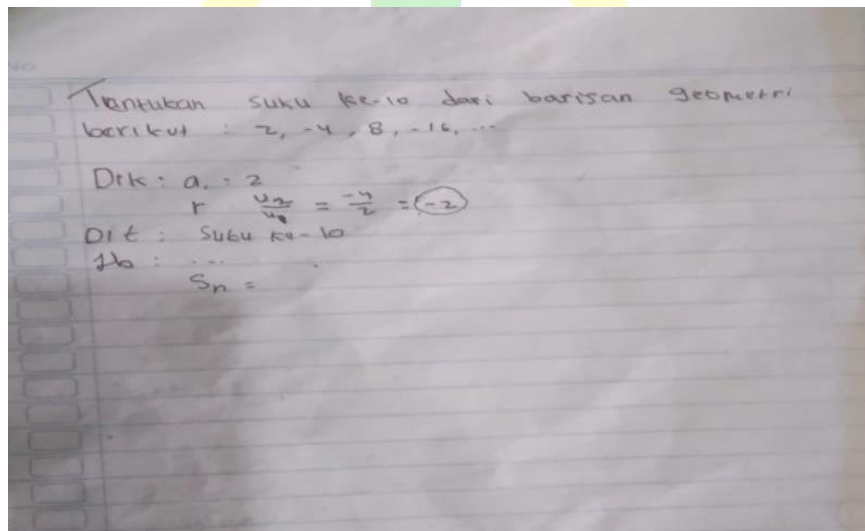 NO
Tentukan suku ke-10 dari barisan geometri
berikut : 2, -4, 8, -16, ...
Dik : a. = 2
r U2/U1 = -4/2 = -2
Dit : Suku ke-10
Jb : ...
Sn =